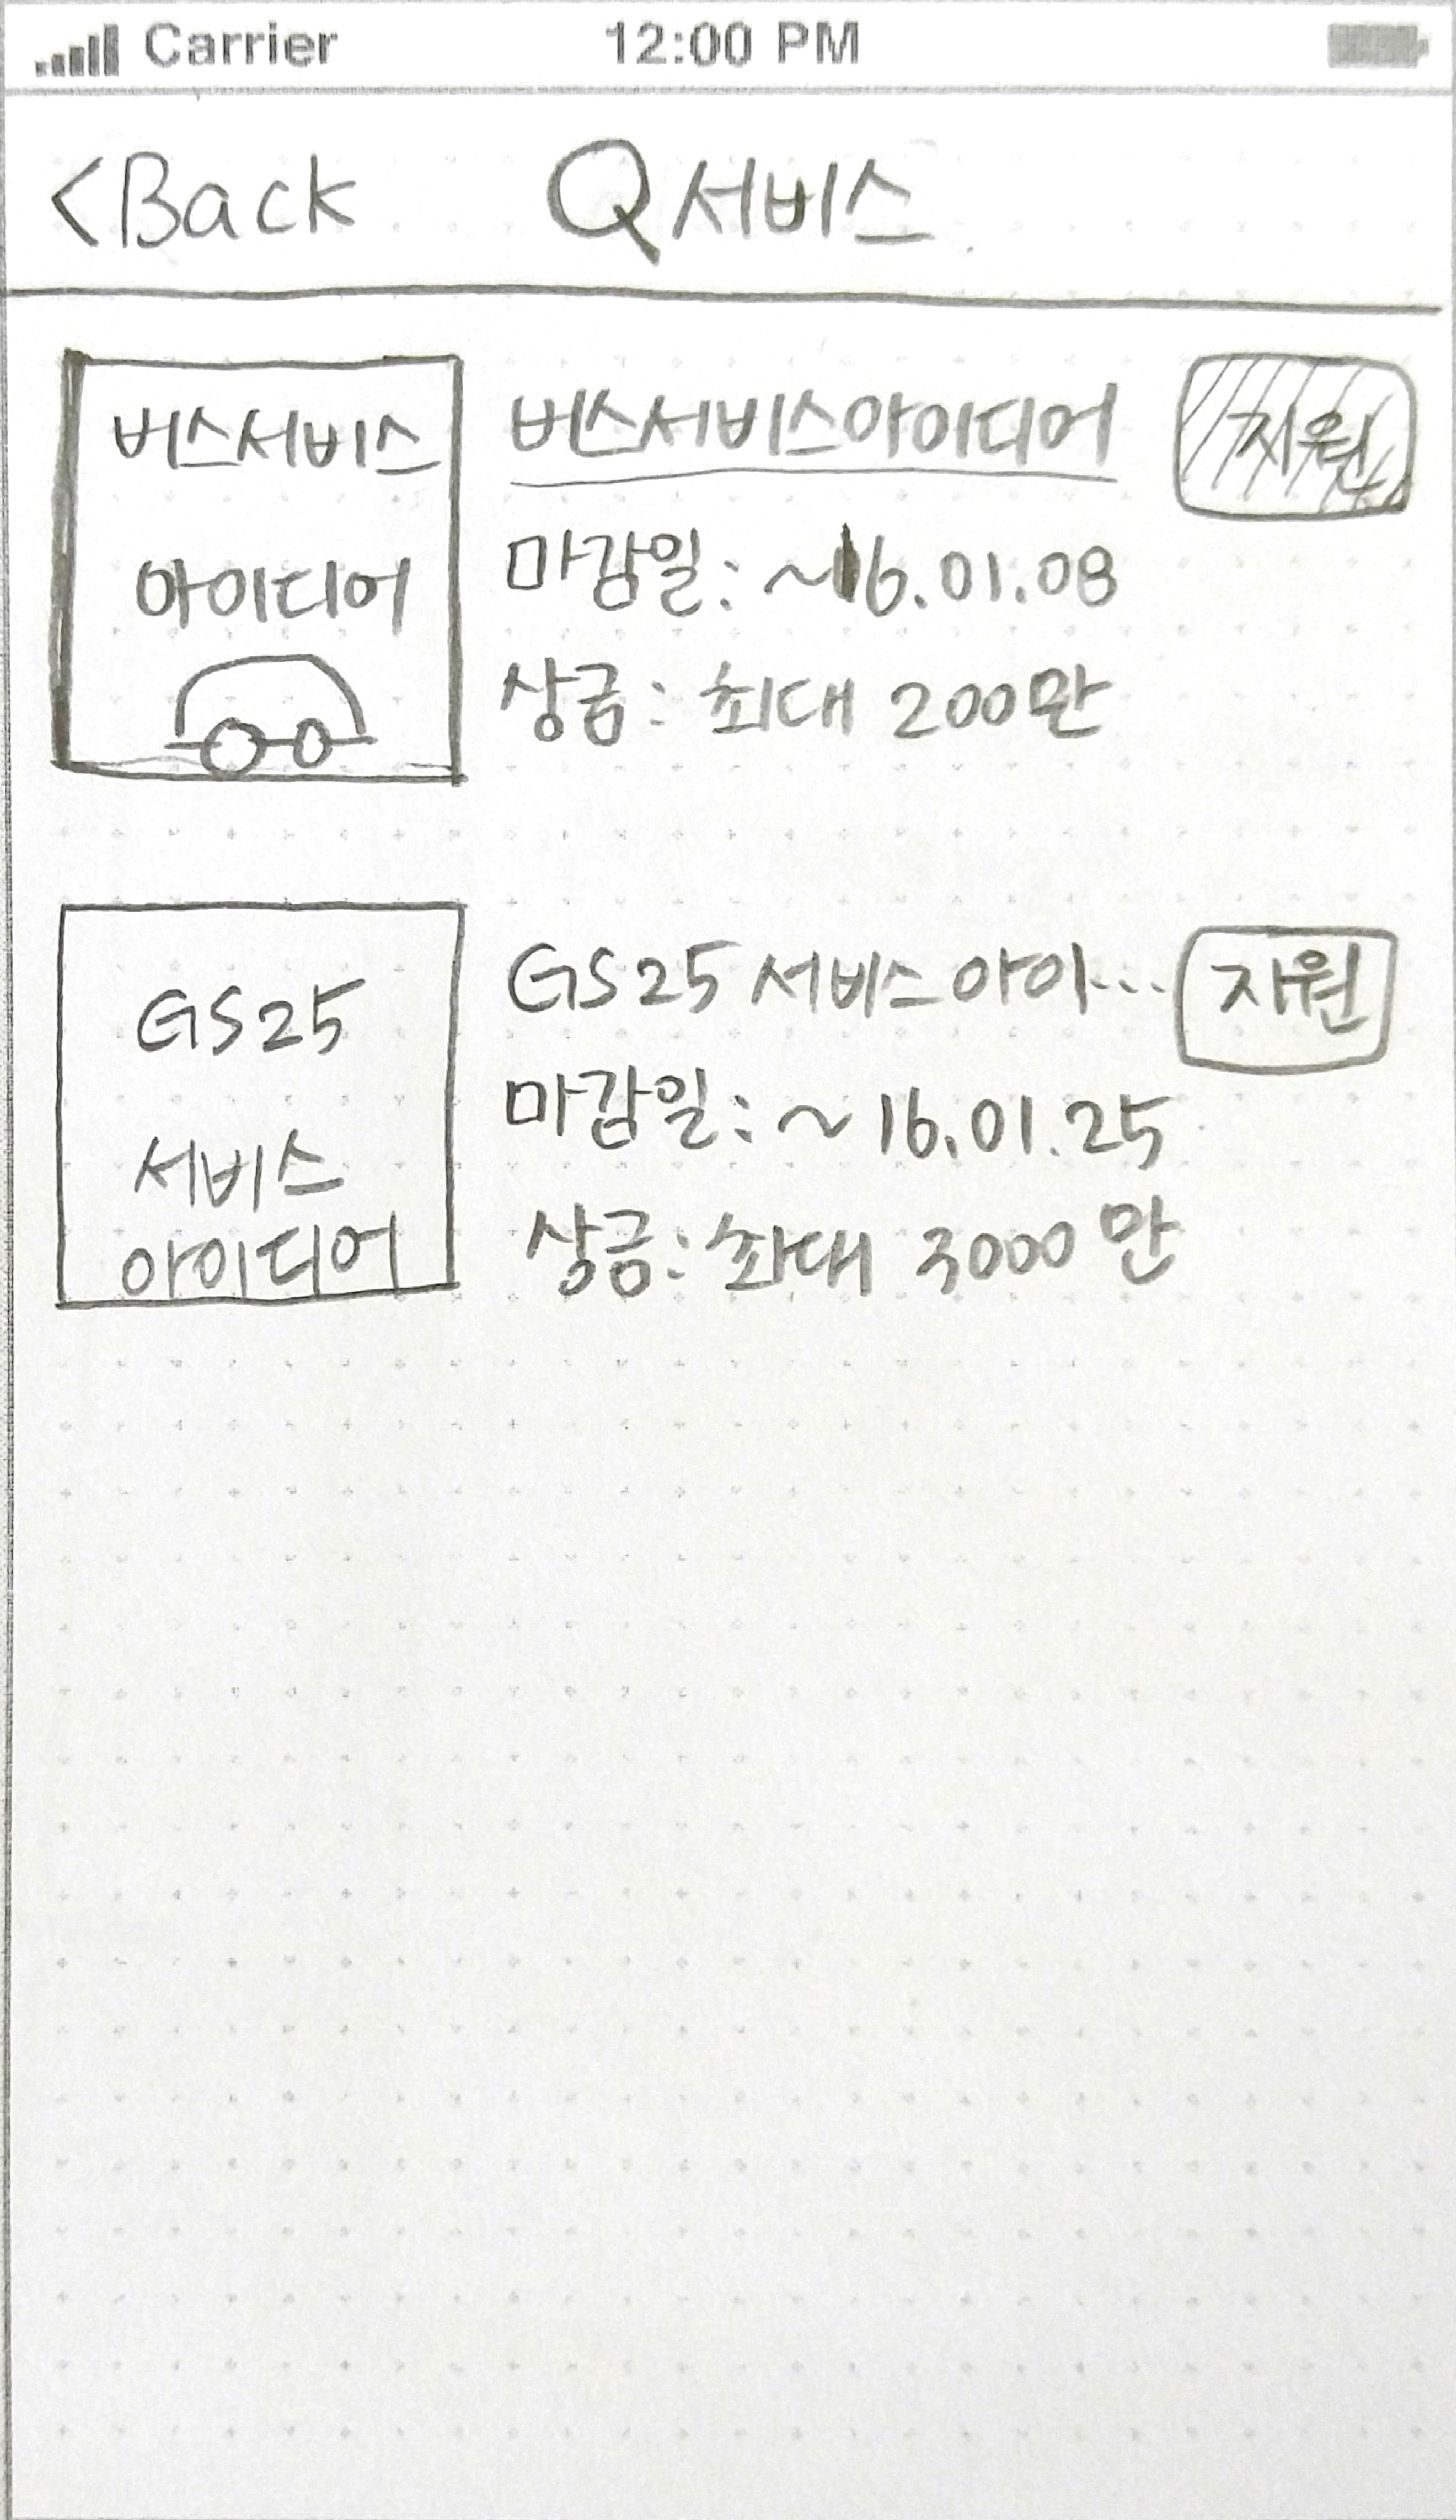 Carrier 12:00 PM
<Back Q서비스
버스서비스
아이디어
버스서비스아이디어
지원
마감일: ~16.01.08
상금: 최대 200만
GS25
서비스
아이디어
GS25 서비스 아이...
지원
마감일: ~16.01.25
상금: 최대 3000만